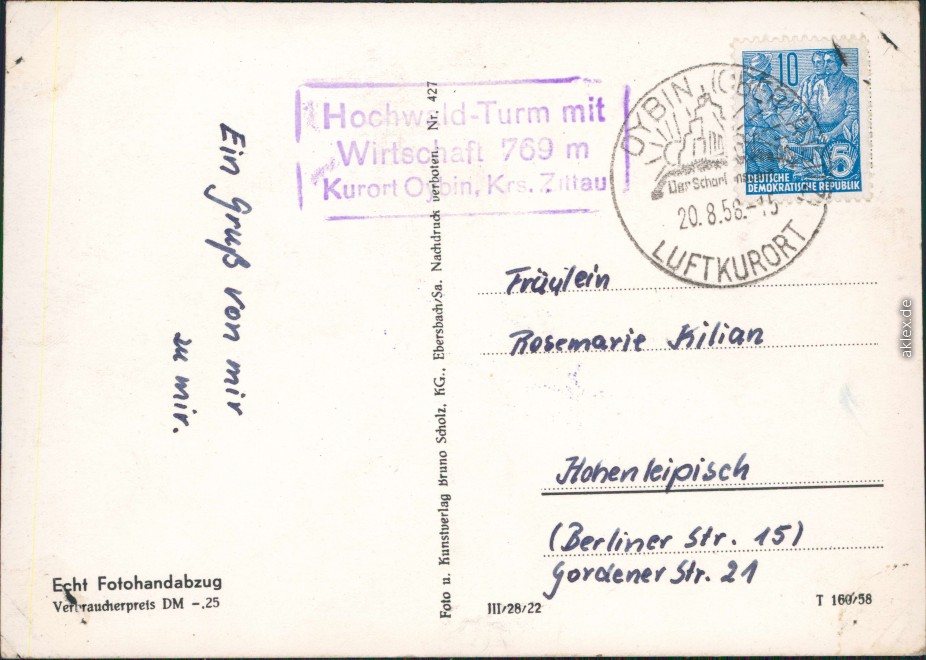 Hochwald-Turm mit
Wirtschaft 769 m
Kurort Oybin, Krs. Zittau
OYBIN
Der Scharf
20.8.58.-15
LUFTKURORT
10
5
DEUTSCHE
DEMOKRATISCHE REPUBLIK
Ein Gruß von mir
zu mir.
Foto u. Kunstverlag Bruno Scholz, KG., Ebersbach/Sa. Nachdruck verboten. Nr. 427
Fräulein
Rosemarie Kilian
Hohenleipisch
(Berliner Str. 15)
Gordener Str. 21
Echt Fotohandabzug
Verbraucherpreis DM -.25
III/28/22
T 160/58
aklex.de